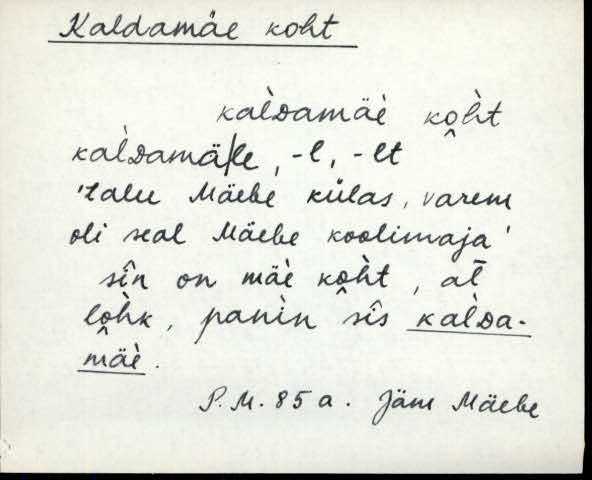 Kaldamäe koht
kal̀damäe�grave ko̭h̀t
kal̀damä|le, -l, -lt
'talu Mäebe külas, varem
oli seal Mäebe koolimaja'
sîn on mäè ko̭h̀t, al̄
lo̭h̀k, panìn sîs kal̀da-
mäè.
P.M. 85 a. Jäm Mäebe